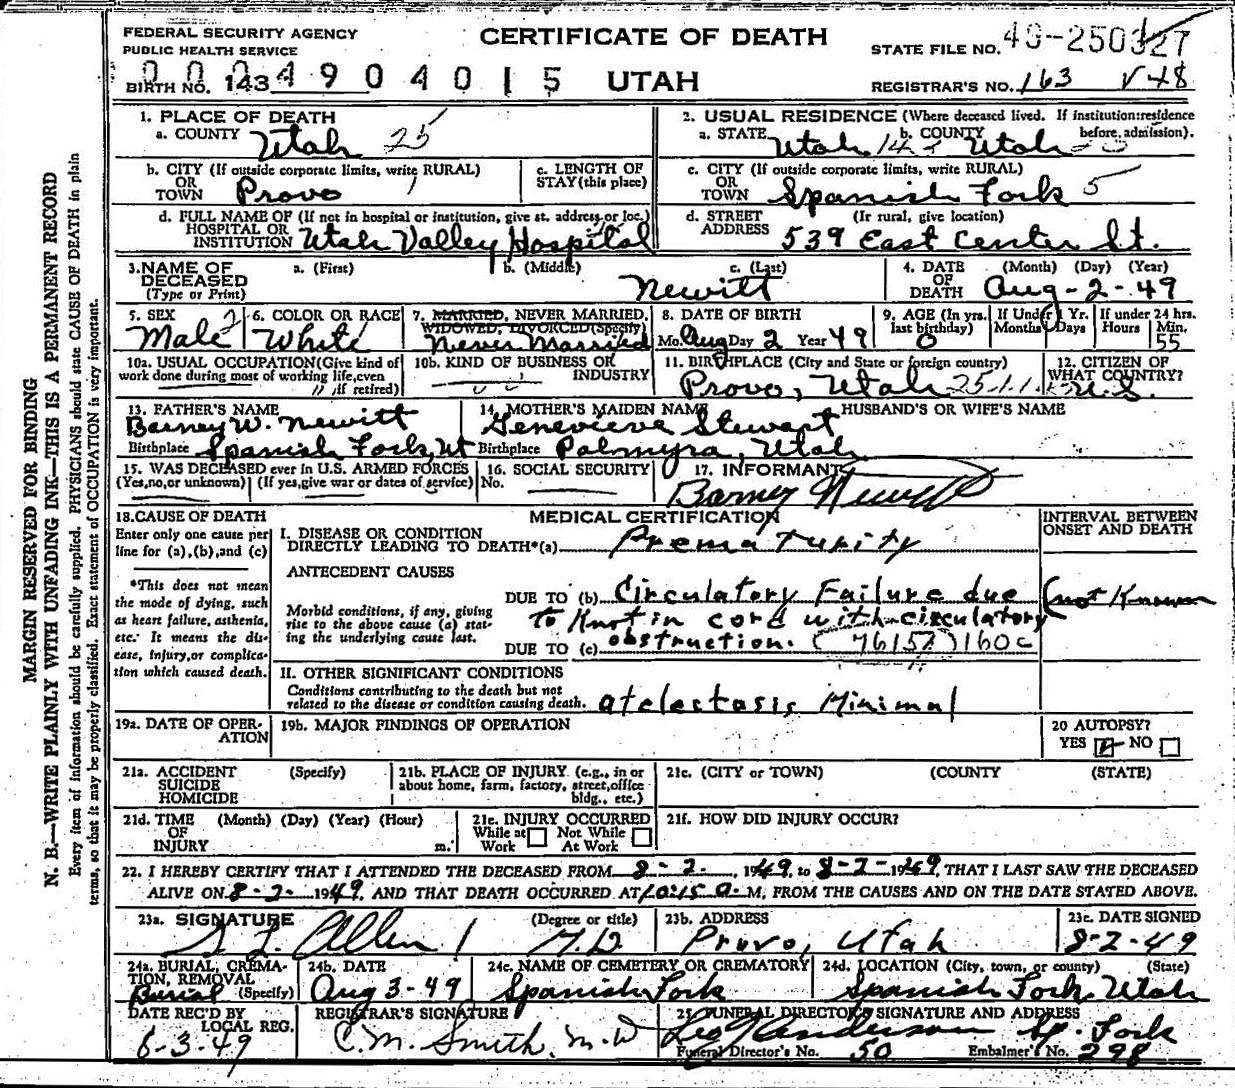 FEDERAL SECURITY AGENCY
PUBLIC HEALTH SERVICE
CERTIFICATE OF DEATH
STATE FILE NO. 49-250327
BIRTH NO. 143 49 04015
UTAH
REGISTRAR'S NO. 163
1. PLACE OF DEATH
a. COUNTY Utah 25
2. USUAL RESIDENCE (Where deceased lived. If institution: residence before admission).
a. STATE Utah 143 b. COUNTY Utah
b. CITY (If outside corporate limits, write RURAL) OR TOWN Provo 1
c. LENGTH OF STAY (this place)
c. CITY (If outside corporate limits, write RURAL) OR TOWN Spanish Fork 5
d. FULL NAME OF (If not in hospital or institution, give st. address or loc.) HOSPITAL OR INSTITUTION Utah Valley Hospital
d. STREET ADDRESS (If rural, give location) 539 East Center St.
3. NAME OF DECEASED (Type or Print)
a. (First) b. (Middle) c. (Last) Newitt
4. DATE OF DEATH (Month) (Day) (Year) Aug-2-49
5. SEX Male 2
6. COLOR OR RACE White
7. MARRIED, NEVER MARRIED, WIDOWED, DIVORCED (Specify) Never Married
8. DATE OF BIRTH Mo. Aug Day 2 Year 49
9. AGE (In yrs. last birthday) 0
If Under 1 Yr. Months Days
If under 24 hrs. Hours Min. 55
10a. USUAL OCCUPATION (Give kind of work done during most of working life, even if retired)
10b. KIND OF BUSINESS OR INDUSTRY
11. BIRTHPLACE (City and State or foreign country) Provo, Utah
12. CITIZEN OF WHAT COUNTRY? U.S.
13. FATHER'S NAME Barney W. Newitt
Birthplace Spanish Fork, Ut
14. MOTHER'S MAIDEN NAME Genevieve Stewart
Birthplace Palmyra, Utah
HUSBAND'S OR WIFE'S NAME
15. WAS DECEASED ever in U.S. ARMED FORCES (Yes, no, or unknown) (If yes, give war or dates of service)
16. SOCIAL SECURITY No.
17. INFORMANT Barney Newitt
18. CAUSE OF DEATH
Enter only one cause per line for (a), (b), and (c)
*This does not mean the mode of dying, such as heart failure, asthenia, etc. It means the disease, injury, or complication which caused death.
MEDICAL CERTIFICATION
INTERVAL BETWEEN ONSET AND DEATH
I. DISEASE OR CONDITION DIRECTLY LEADING TO DEATH*(a) Prematurity
ANTECEDENT CAUSES
Morbid conditions, if any, giving rise to the above cause (a) stating the underlying cause last.
DUE TO (b) Circulatory Failure due (not Known
to Knot in cord with circulatory
DUE TO (c) obstruction. 160c
II. OTHER SIGNIFICANT CONDITIONS
Conditions contributing to the death but not related to the disease or condition causing death. atelectasis, Minimal
19a. DATE OF OPERATION
19b. MAJOR FINDINGS OF OPERATION
20 AUTOPSY? YES NO
21a. ACCIDENT SUICIDE HOMICIDE (Specify)
21b. PLACE OF INJURY (e.g., in or about home, farm, factory, street, office bldg., etc.)
21c. (CITY or TOWN) (COUNTY (STATE)
21d. TIME OF INJURY (Month) (Day) (Year) (Hour) m.
21e. INJURY OCCURRED While at Work Not While At Work
21f. HOW DID INJURY OCCUR?
22. I HEREBY CERTIFY THAT I ATTENDED THE DECEASED FROM 8-2-, 1949, to 8-2-1949, THAT I LAST SAW THE DECEASED
ALIVE ON 8-2-1949, AND THAT DEATH OCCURRED AT 10:15 a. M, FROM THE CAUSES AND ON THE DATE STATED ABOVE.
23a. SIGNATURE Allen (Degree or title) M.D.
23b. ADDRESS Provo, Utah
23c. DATE SIGNED 8-2-49
24a. BURIAL, CREMATION, REMOVAL (Specify) Burial
24b. DATE Aug 3-49
24c. NAME OF CEMETERY OR CREMATORY Spanish Fork
24d. LOCATION (City, town, or county) (State) Spanish Fork, Utah
DATE REC'D BY LOCAL REG. 6-3-49
REGISTRAR'S SIGNATURE C.M. Smith, M.D
25. FUNERAL DIRECTOR'S SIGNATURE AND ADDRESS Anderson Sp. Fork
Funeral Director's No. 50 Embalmer's No. 298
MARGIN RESERVED FOR BINDING
N. B.—WRITE PLAINLY WITH UNFADING INK—THIS IS A PERMANENT RECORD
Every item of information should be carefully supplied. PHYSICIANS should state CAUSE OF DEATH in plain
terms, so that it may be properly classified. Exact statement of OCCUPATION is very important.